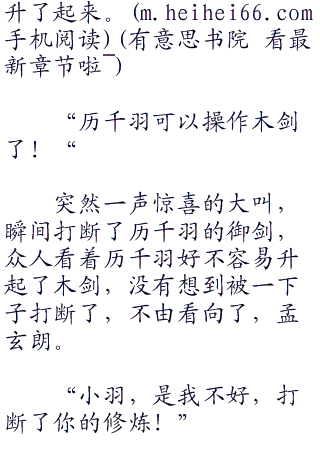 升了起来。(m.heihei66.com
手机阅读)(有意思书院 看最
新章节啦¯)
“历千羽可以操作木剑
了！“
突然一声惊喜的大叫，
瞬间打断了历千羽的御剑，
众人看着历千羽好不容易升
起了木剑，没有想到被一下
子打断了，不由看向了，孟
玄朗。
“小羽，是我不好，打
断了你的修炼！”